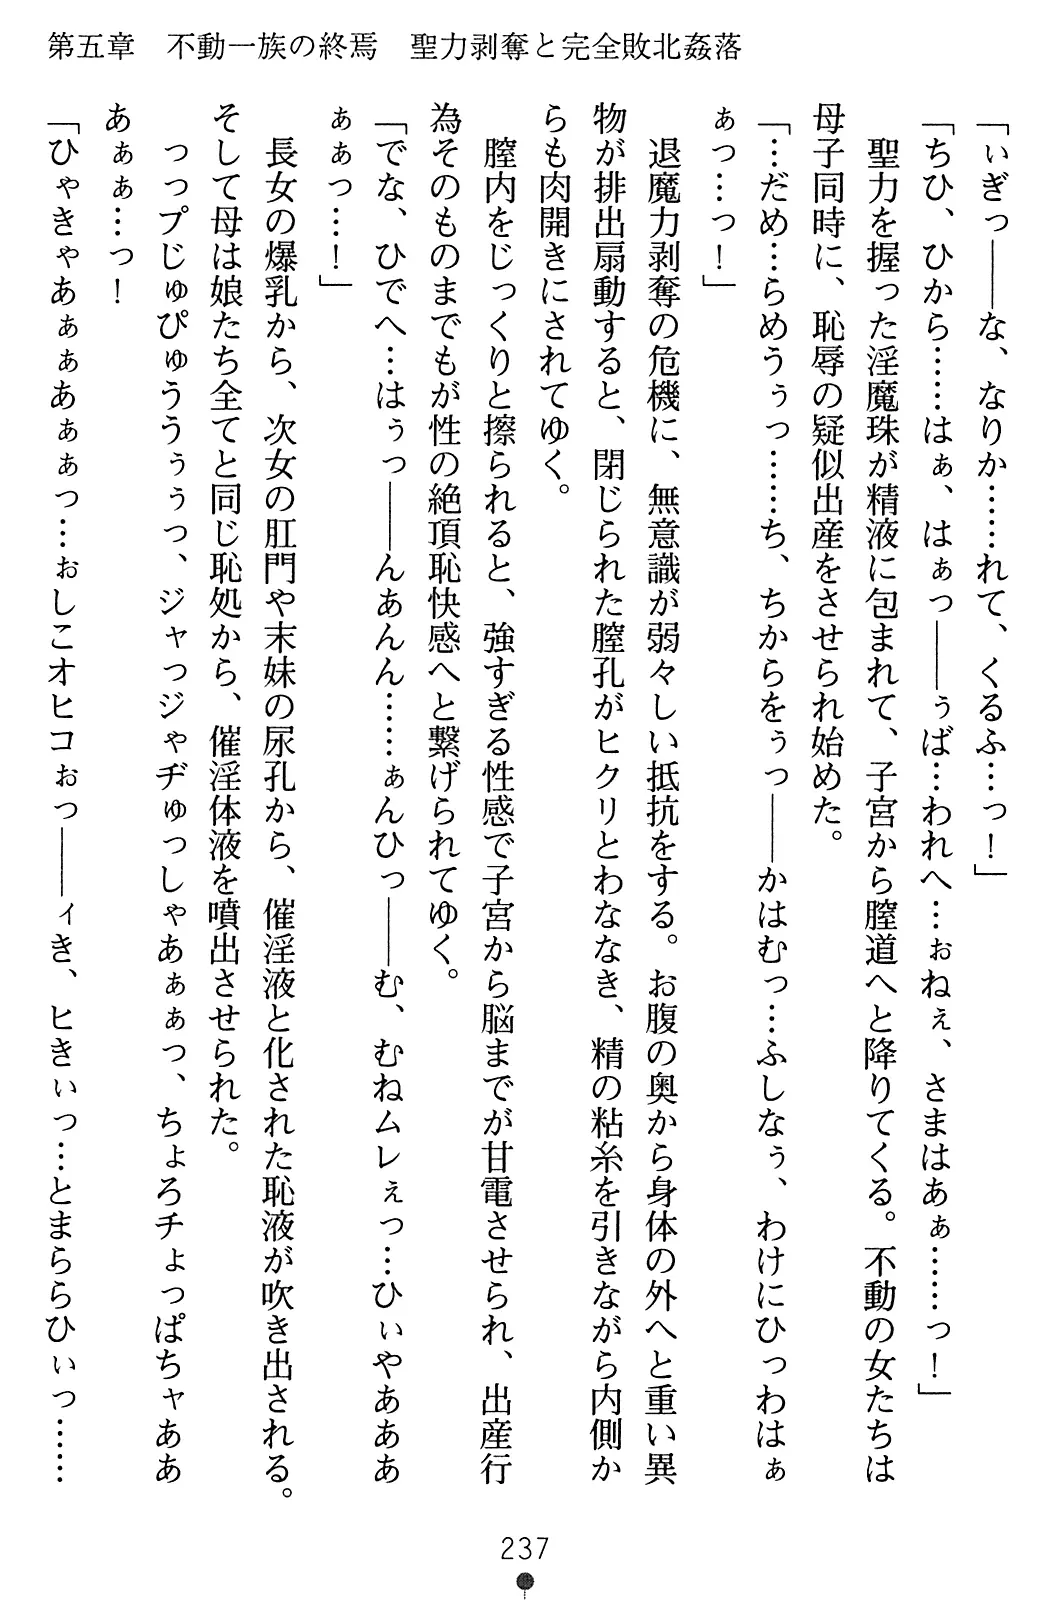 第五章　不動一族の終焉　聖力剥奪と完全敗北姦落
「ぃぎっ――な、なりか……れて、くるふ…っ！」
「ちひ、ひから……はぁ、はぁっ――ぅば…われへ…ぉねぇ、さまはあぁ……っ！」
　聖力を握った淫魔珠が精液に包まれて、子宮から膣道へと降りてくる。不動の女たちは
母子同時に、恥辱の疑似出産をさせられ始めた。
「…だめ…らめうぅっ……ち、ちからをぅっ――かはむっ…ふしなぅ、わけにひっわはぁ
ぁっ…っ！」
　退魔力剥奪の危機に、無意識が弱々しい抵抗をする。お腹の奥から身体の外へと重い異
物が排出扇動すると、閉じられた膣孔がヒクリとわななき、精の粘糸を引きながら内側か
らも肉開きにされてゆく。
　膣内をじっくりと擦られると、強すぎる性感で子宮から脳までが甘電させられ、出産行
為そのものまでもが性の絶頂恥快感へと繋げられてゆく。
「でな、ひでへ…はぅっ――んあんん……ぁんひっ――む、むねムレぇっ…ひぃやあああ
ぁぁっ…！」
　長女の爆乳から、次女の肛門や末妹の尿孔から、催淫液と化された恥液が吹き出される。
そして母は娘たち全てと同じ恥処から、催淫体液を噴出させられた。
　っっプじゅぴゅううぅぅっ、ジャっジャヂゅっしゃあぁぁっ、ちょろチょっぱちャああ
あぁぁ…っ！
「ひゃきゃあぁぁあぁぁっ…ぉしこオヒコぉっ――ィき、ヒきぃっ…とまららひぃっ……
237